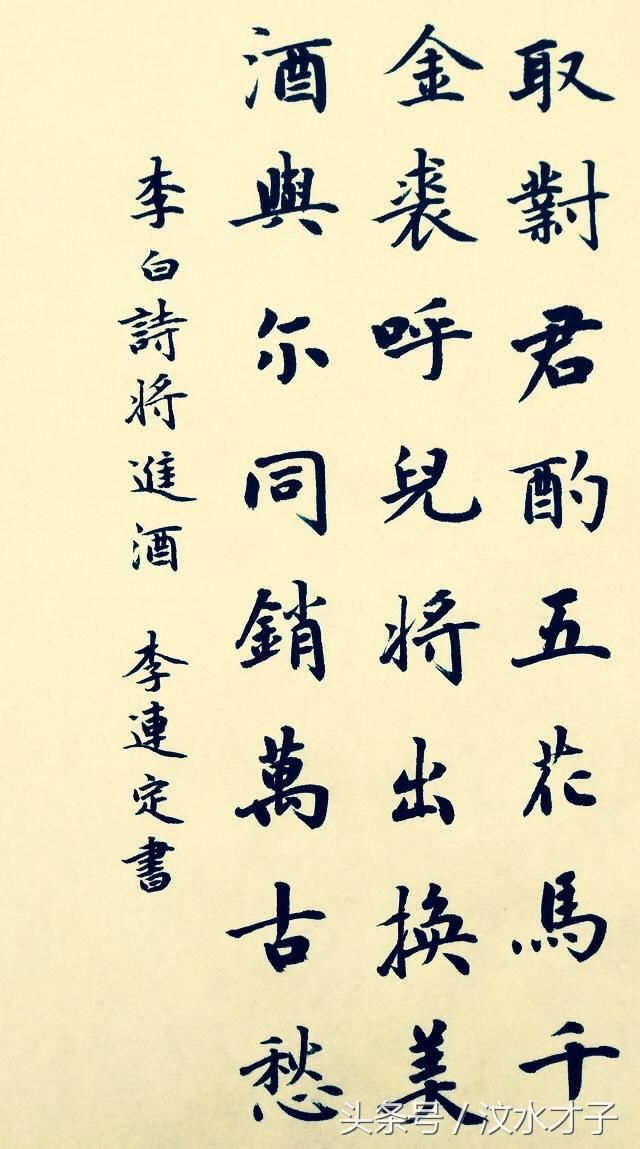 取對君酌五花馬千
金裘呼兒將出換美
酒與尔同銷萬古愁
李白詩將進酒 李連定書
头条号 / 汶水才子